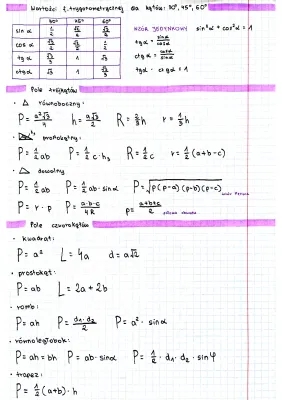 Wartości f. trygonometrycznej dla kątów: 30°, 45°, 60°
30° 45° 60°
sin α 1/2 √2/2 √3/2
cos α √3/2 √2/2 1/2
tg α √3/3 1 √3
ctg α √3 1 √3/3
WZÓR JEDYNKOWY sin²α + cos²α = 1
tg α = sin α / cos α
ctg α = cos α / sin α
tg α · ctg α = 1
Pole trójkątów
△ równoboczny:
P = a²√3/4 h = a√3/2 R = 2/3 h r = 1/3 h
prostokątny:
P = 1/2 ab P = 1/2 c · h₃ R = 1/2 c r = 1/2 (a+b-c)
△ dowolny
P = 1/2 ah P = 1/2 ab · sin α P = √p(p-a)(p-b)(p-c)
P = r · p P = a·b·c/4R p = a+b+c/2
Pole czworokątów
• kwadrat:
P = a² L = 4a d = a√2
• prostokąt:
P = ab L = 2a + 2b
• romb:
P = ah P = d₁·d₂/2 P = a² · sin α
• równoległobok:
P = ah = bh P = ab · sin α P = 1/2 · d₁ · d₂ · sin φ
• trapez:
P = 1/2 (a+b) · h